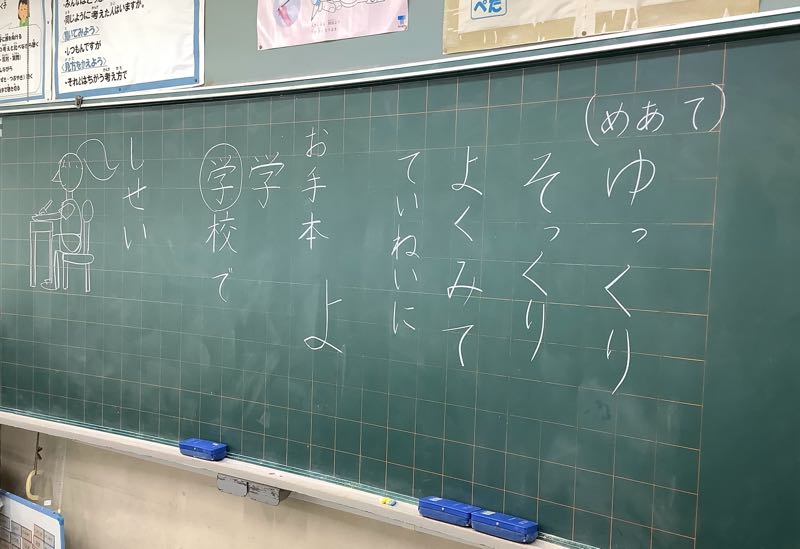 同じように考えた人はいますか。
〈聞いてみよう〉
・しつもんですが
〈見方をかえよう〉
・それとはちがう考え方で
ぺた
(めあて)
ゆっくり
そっくり
よくみて
ていねいに
お手本 よ
学
学校で
しせい